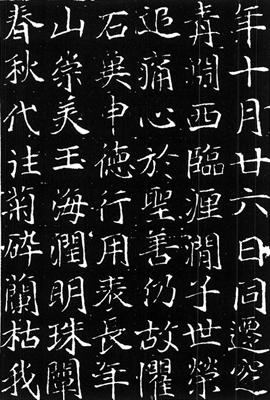 年十月廿六日同遷窆
澗西臨瀍澗子世榮
追痛心於聖善仍故懼
石申德行用表長年
山崇美玉海潤明珠
春秋代往菊碎蘭枯我